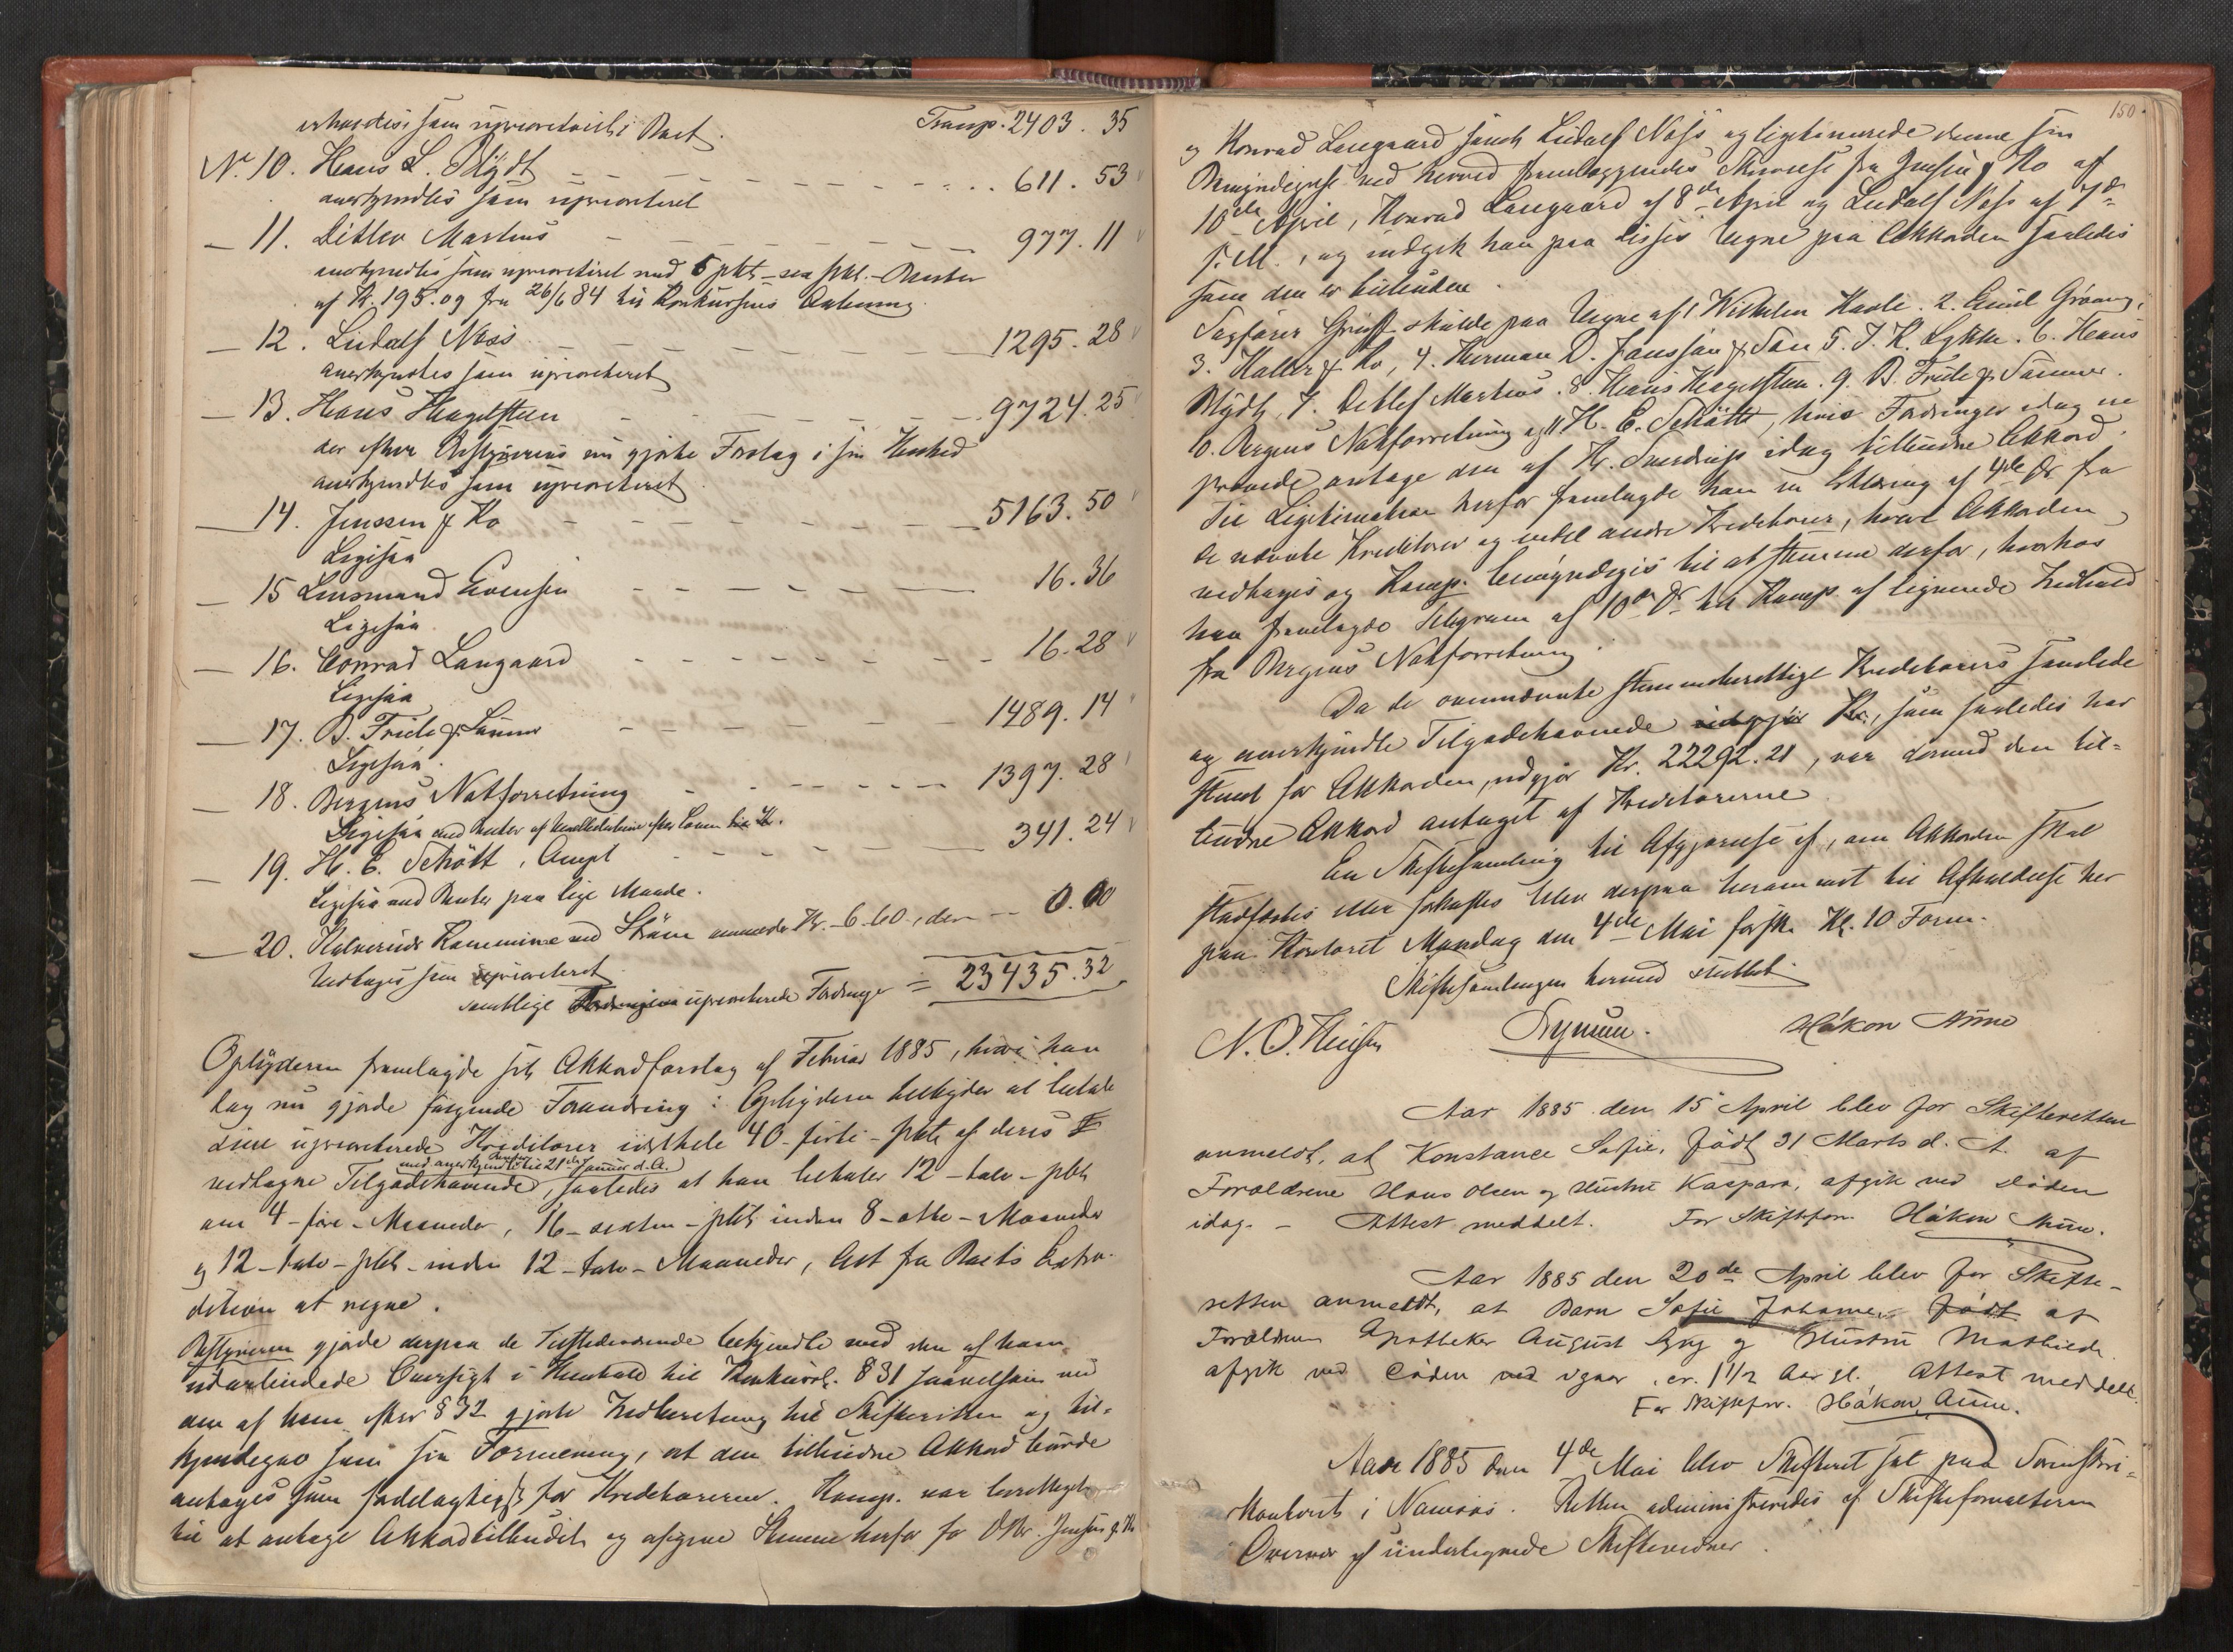 som uprioriteret i Boet. Transp. 2403. 35
No 10. Hans L. Blydt - - - 611. 53
anerkjendtes som uprioriteret
— 11. Ditlev Martens - - - 977. 11
anerkjendtes som uprioriteret med 6 pCt - sex pCt. - Renter
af Kr. 195.09 fra 26/6 84 til Konkursens Aabning.
— 12. Ludolf Næss - - - 1295. 28
anerkjendtes som uprioriteret
— 13. Hans Hagelsteen - - - 9724. 25
der efter Bestyrerens nu gjorte Forslag i sin Helhed
anerkjendtes som uprioriteret
— 14. Jenssen & Ko - - - 5163. 50
Ligesaa
— 15 Lensmand Evensen - - - 16. 36
Ligesaa.
— 16. Conrad Langaard - - - 16. 28
Ligesaa
— 17. B. Friele & Sønner - - - 1489. 14
Ligesaa.
— 18. Bergens Notforretning - - - 1397. 28
Ligesaa med Renter af
— 19. H. E. Schött, - - - 341. 24
Ligesaa med Renter paa lige Maade.
— 20. Kommune ved Strøm anmeldte Kr. 6.60, den — 0.00
Vedtages som uprioriteret
samtlige uprioriterede Fordringer = 23435.32
Opbyderen fremlagde sit Akkordforslag af Februar 1885, hvori han
dog nu gjorde følgende Forandring: Opbyderen tilbyder at betale
sine uprioriterede Kreditorer istedet 40 - firti - pCt af deres
med anerkjendte Renter til 21de Januar d. A.
vedtagne Tilgodehavende, saaledes at han betaler 12 - tolv - pCt
om 4 - fire - Maaneder, 16 - sexten - pCt inden 8 - otte - Maaneder
og 12 - tolv - pCt - inden 12 - tolv - Maaneder, Alt fra Boets Extra-
dition at regne.
Bestyreren gjorde derpaa de Tilstedeværende bekjendte med den af ham
udarbeidede Oversigt i Henhold til Konkursl. § 31 saavelsom med
den af ham efter § 32 gjorte Indberetning til Skifteretten og til-
kjendegav som sin Formening, at den tilbudne Akkord burde
antages som fordelagtigst for Kreditorerne. Komp. var berettiget
til at antage Akkordtilbudet og afgive Stemme herfor for Jenssen & Ko
150.
og Konrad Langaard samt Ludolf Næss og legitimerede denne sin
Bemyndigelse ved herved fremlæggendes Skrivelse fra Jenssen & Ko af
10de April, Konrad Langaard af 8de April og Ludolf Næss af 7de
s. M., og indgik han paa disses Vegne paa Akkorden saaledes
som den er tilbuden.
Sagfører skulde paa Vegne af 1 Wilhelm 2. Emil
3. Haller & Ko, 4. Herman D. Janssson & Søn 5. J. K. Lykke. 6. Hans
Blydt, 7. Detlef Martens. 8. Hans Hagelsteen. 9. B. Friele & Sønner.
10. Bergens Notforretning og 11. H. E. Schøtt, hvis Fordringer idag er
prøvede, antage den af Hr. Sverdrup idag tilbudne Akkord.
Til Legitimation herfor fremlagde han en Erklæring af 4de ds. fra
de nævnte Kreditorer og endel andre Kreditorer, hvori Akkorden
vedtages og Komp. bemyndiges til at stemme derfor, hvorhos
han fremlagde Telegram af 10de ds. til Komp. af lignende Indhold
fra Bergens Notforretning.
Da de ovennævnte stemmeberettige Kreditorers samlede
og anerkjendte Tilgodehavende Kr., som saaledes har
stemt for Akkorden, udgjør Kr. 22292.21, var dermed den til-
budne Akkord antaget af Kreditorerne
En Skiftesamling til Afgjørelse af, om Akkorden skal
stadfæstes eller forkastes blev derpaa berammet til Afholdelse her
paa Kontoret Mandag den 4de Mai førstk. Kl. 10 Form.
Skiftesamlingen hermed sluttet.
Håkon Aune
Aar 1885 den 15 April blev for Skifteretten
anmeldt, at Konstance Sofie, født 31 Marts d. A. af
Forældrene Hans Olsen og Hustru Kaspara, afgik ved Døden
idag. - Attest meddelt. For Skifteforv. Håkon Aune.
Aar 1885 den 20de April blev for Skifte-
retten anmeldt, at Barn Sofie Johanne, født af
Forældrene Apotheker August og Hustru Mathilde
afgik ved Døden ved igaar, er. 1 1/2 Aar gl. Attest meddelt.
For Skifteforv. Håkon Aune.
Aar 1885 den 4de Mai blev Skifteret sat paa Sorenskri-
verkontoret i Namsos. Retten administreredes af Skifteforvalteren
Overvær af undertegnede Skiftevidner.